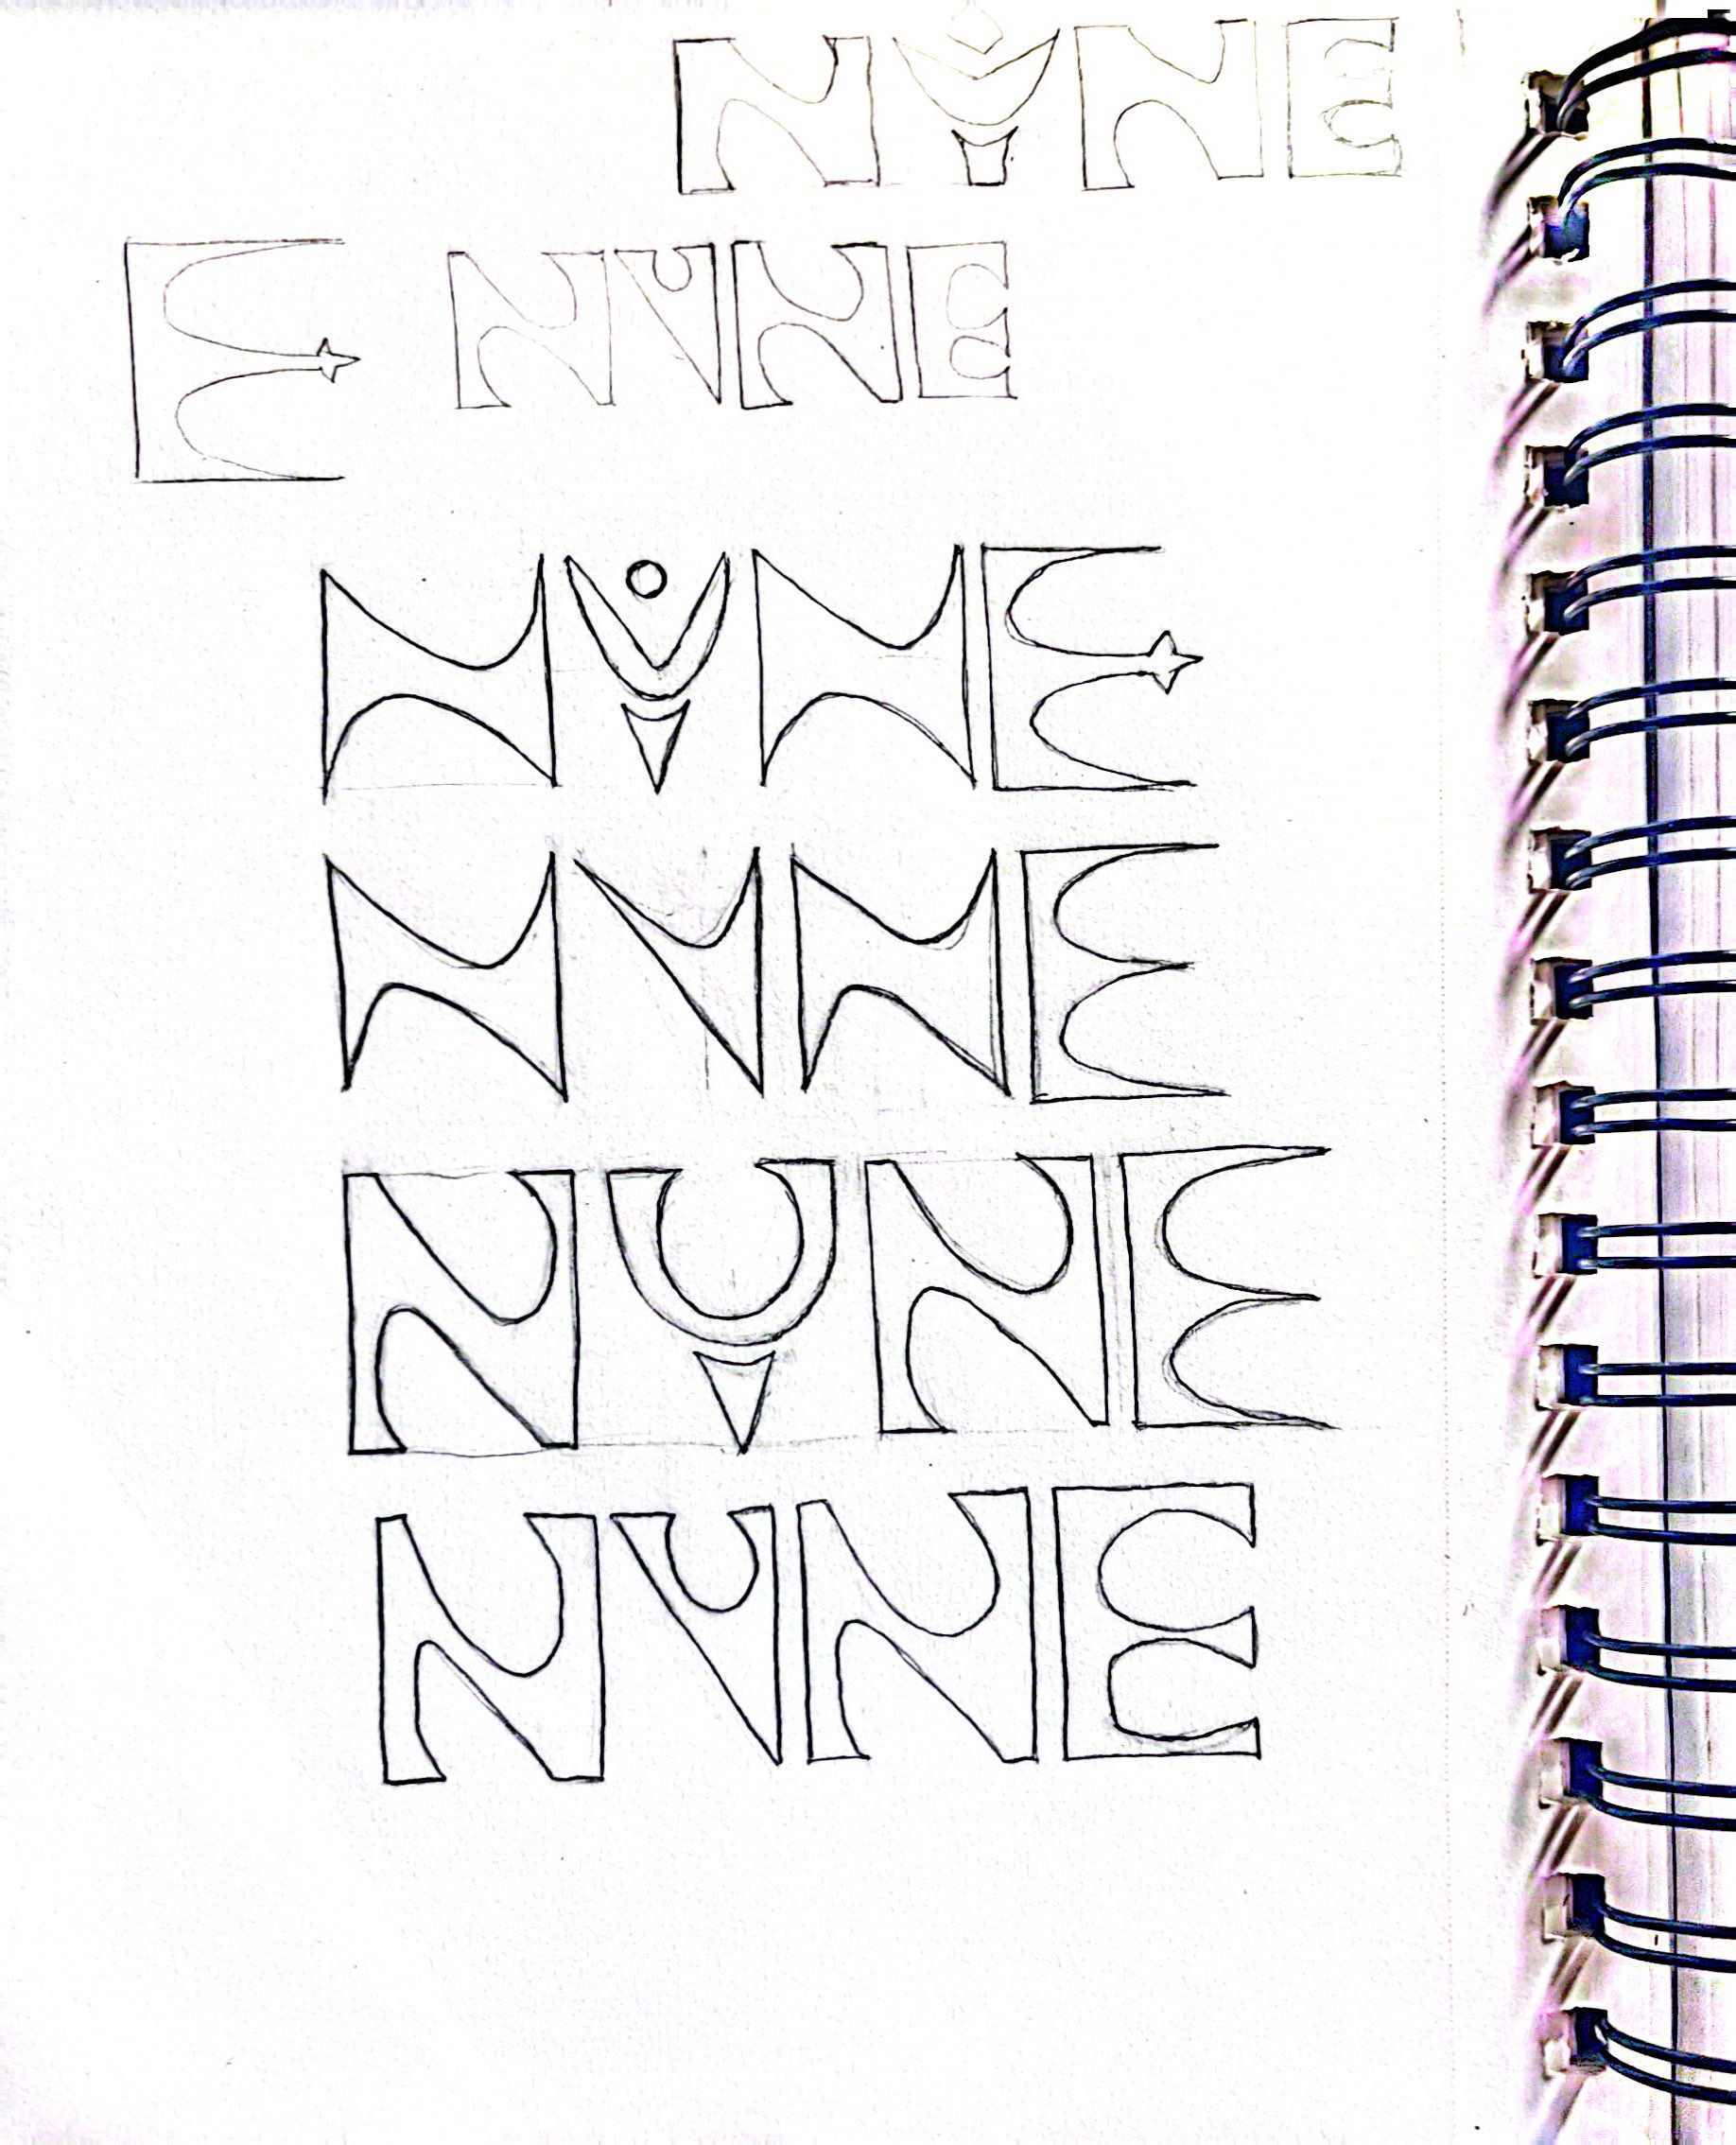 NYNE
E NYNE
NYNE
NYNE
NYNE
NYNE